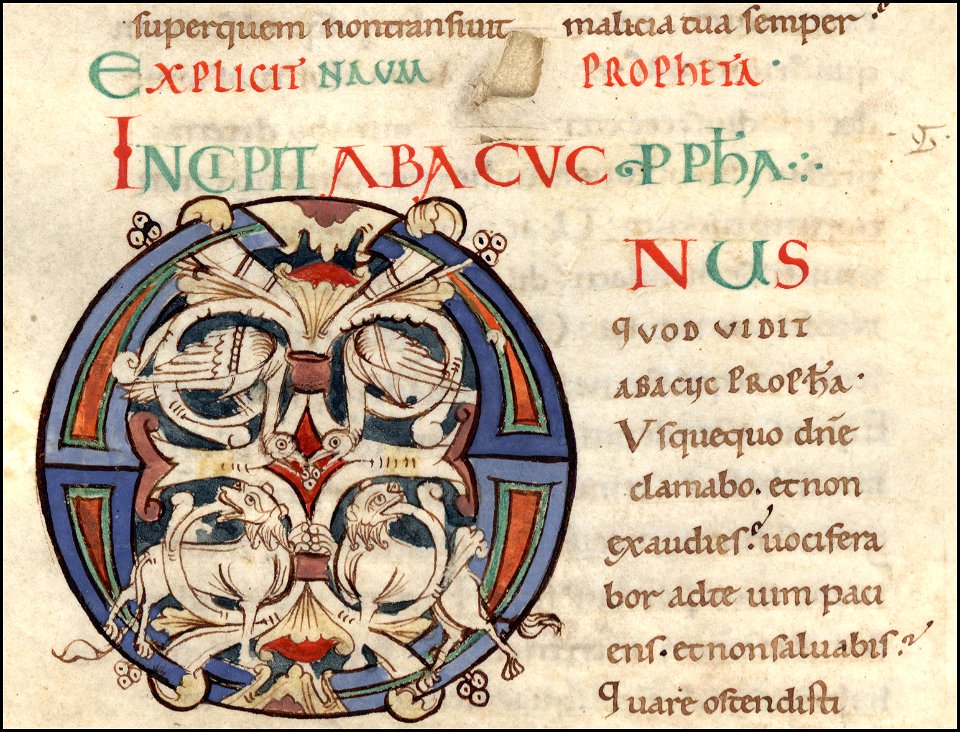 superquem nontransiuit malicia tua semper
EXPLICIT NAUM PROPHETA
INCIPIT ABACUC PPħA
O NUS
QVOD VIDIT
ABACUC PROPħA
Vsquequo dn̄e
clamabo. et non
exaudies? uocifera
bor adte uim paci
ens. et nonsaluabis?
Quare ostendisti